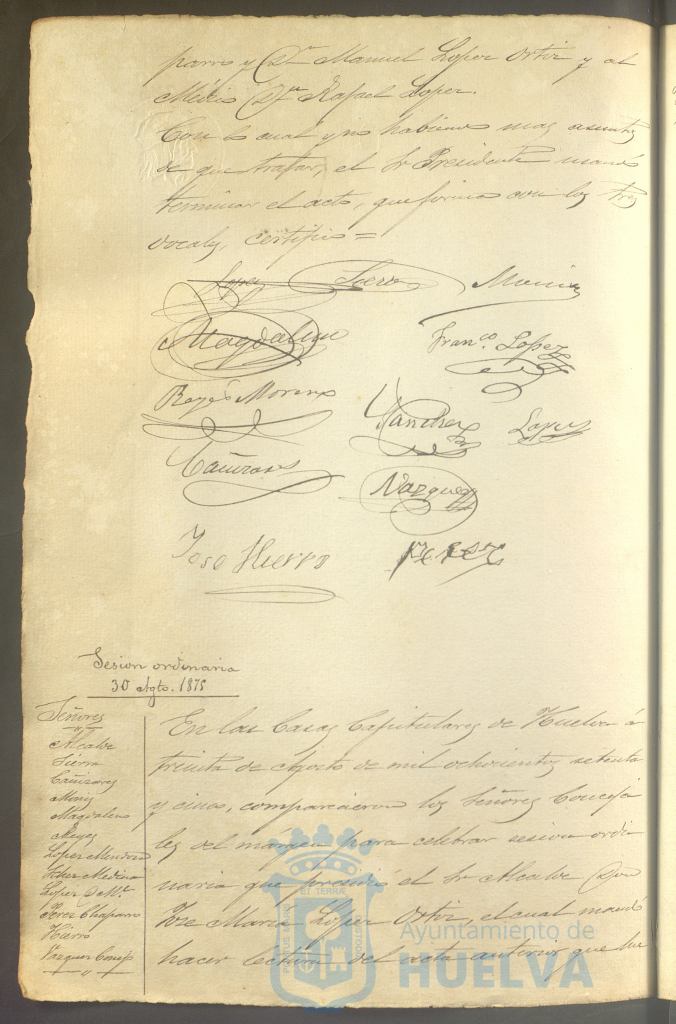 parro y Dn Manuel Lopez Ortiz y al
Médico Dn Rafael Lopez.
Con lo cual y no habiendo mas asuntos
de que tratar, el Sr Presidente mandó
terminar el acto, que firma con los Sres
vocales, certifico =
Lopez Sierra
Magdaleno Franco. Lopez
Reyes Moreno
Sanchez Lopez
Cañizares Vazquez
Jose Hierro Perez
Sesion ordinaria
30 Agto. 1875
Señores
Alcalde
Sierra
Cañizares
Magdaleno
Reyes
Lopez Mendoza
Lopez D. Ml.
Perez Chaparro
Hierro
Vazquez
En las Casas Capitulares de Huelva á
treinta de Agosto de mil ochocientos setenta
y cinco, comparecieron los Señores Conceja
les del márgen para celebrar sesion ordi
naria que presidió el Sr Alcalde Don
Jose Maria Lopez Ortiz, el cual mandó
hacer lectura del acta anterior que fue
Ayuntamiento de
HUELVA